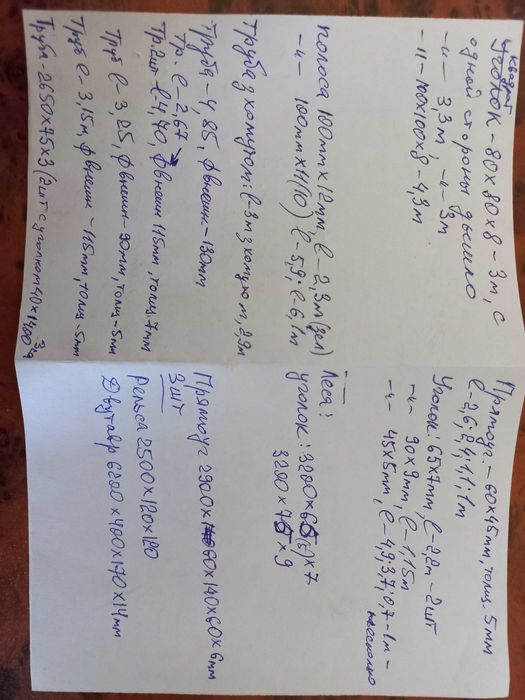 квадрат
Уголок - 80х80х8 - 3м, с
одной стороны дышло
-"- 3,3м, -"- 3м
-"- 100х100х8 - 4,3м
Полоса 100мм х 12мм, l - 2,3м (зел)
-"- 100мм х 4(10) l - 5,9; l - 6,1м
Труба з хомутом: l - 3м з хомутом, 2,9м
Труба - 4,85, ф внешн - 130мм
Тр. l - 2,67
Тр. 2шт l - 4,40, ф внешн 115мм, толщ. 7мм
Труб l - 3,25, ф внешн - 90мм, толщ - 5мм
Труб l - 3,15м, ф внешн - 115мм, толщ - 5мм
Труба 2650х75х3 (2шт с уголком 40х1400
Прямоуг. - 60х45мм, толщ. 5мм
l - 2,6; 2,4; 1,1; 1м
Уголок: 65х7мм, l - 2,2м - 2шт
-"- 90х9мм, l - 1,15м
-"- 45х5мм, l - 4,9; 3,7; 0,7 - 1м -
несколько
Леса:
уголок: 3200х65(5)х7
3200х75х9
Прямоуг 2900х140х60х6мм
3шт
Рельса 2500х120х120
Двутавр 6200х400х170х14мм